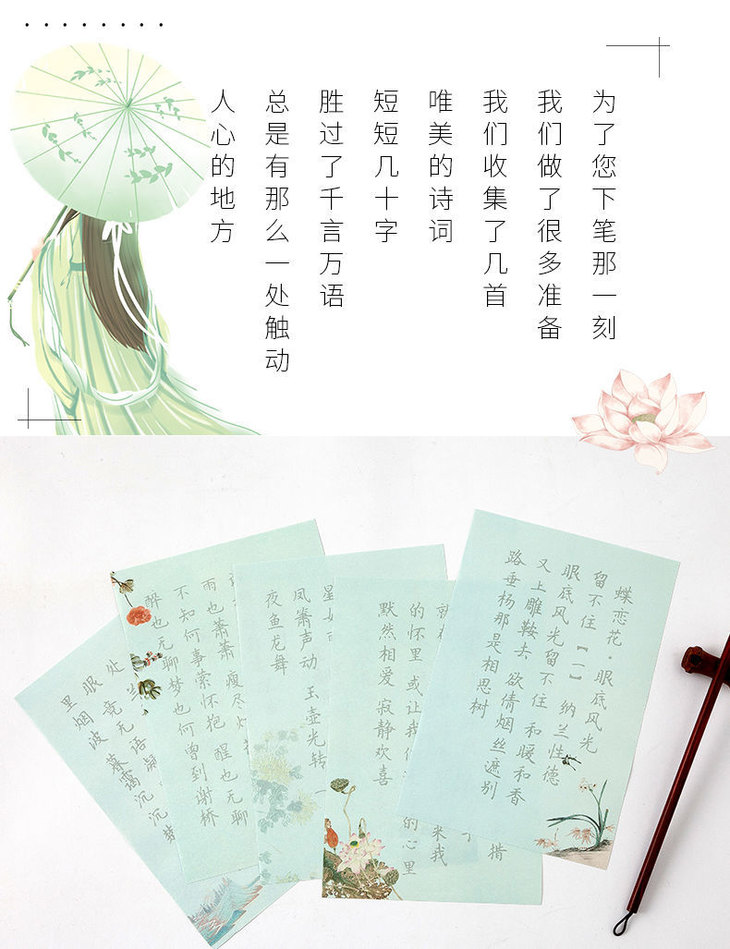 为了您下笔那一刻
我们做了很多准备
我们收集了几首
唯美的诗词
短短几十字
胜过了千言万语
总是有那么一处触动
人心的地方
蝶恋花·眼底风光
留不住【一】纳兰性德
眼底风光留不住 和暖和香
又上雕鞍去 欲倩烟丝遮别
路垂杨那是相思树
措
来我
的心里
的怀里 或让我
默然相爱 寂静欢喜
凤箫声动 玉壶光转 一
夜鱼龙舞
雨也萧萧 瘦尽灯
不知何事萦怀抱 醒也无聊
醉也无聊梦也何曾到谢桥
处
眼 竟无语凝
里烟波 暮霭沉沉楚